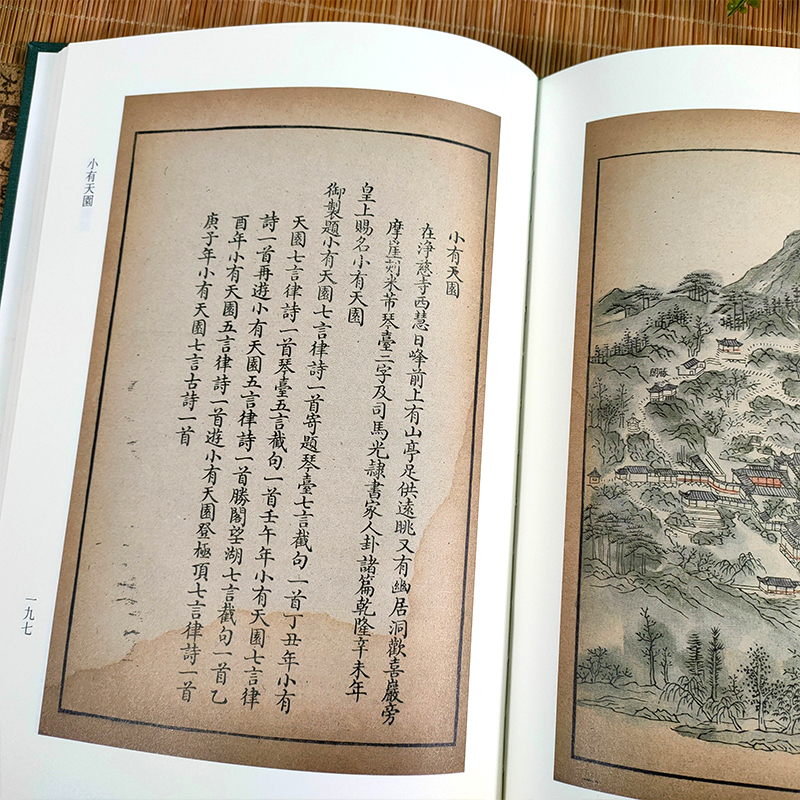 小有天園
在淨慈寺西慧日峰前上有山亭足供遠眺又有幽居洞歡喜巖旁
摩崖刻米芾琴臺二字及司馬光隷書家人卦諸篇乾隆辛未年
皇上賜名小有天園
御製題小有天園七言律詩一首寄題琴臺七言截句一首丁丑年小有
天園七言律詩一首琴臺五言截句一首壬午年小有天園七言律
詩一首再遊小有天園五言律詩一首勝閣望湖七言截句一首乙
酉年小有天園五言律詩一首遊小有天園登極頂七言律詩一首
庚子年小有天園七言古詩一首
小有天園
一九七